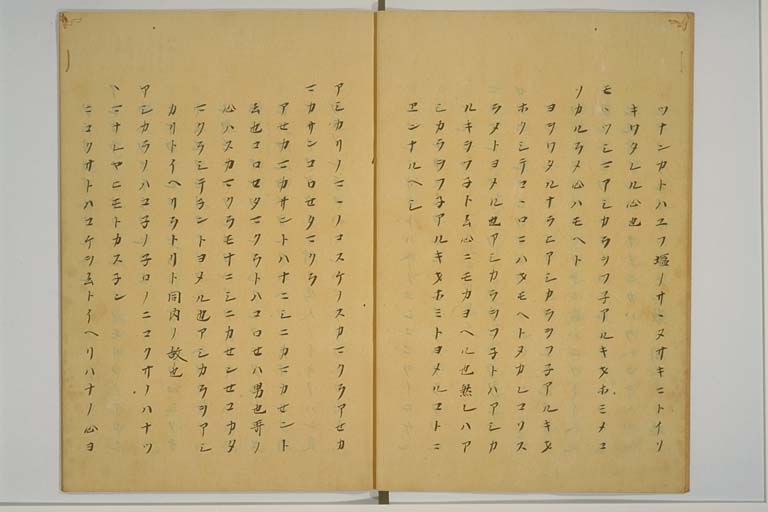 ツナシカトハユフ塩ノサヽヌサキニトイソ
キワタレル心也
モヽツシニアシカラヲフ子アルキオホミメコ
ソカルラメ心ハモヘト
ヨヲワタルナラヒアシカラヲフ子アルキオ
ホクシテコヽロニハオモヘトメカレコソス
ラメトヨメル也アシカラヲフ子トハアシカ
ルキヲフ子ト云心ニモカヨヘル也然レハア
シカラヲフ子アルキオホミトヨメルコトニ
エンナルヘシ
アシカリノマヽノコスケノスカマクラアセカ
マカサンコロセタマクラ
アセカマカサントハナニシニカマカセント
云也コロセタマクラトハコロセハ男也哥ノ
心ハスカマクラモナニシニカセンセコカタ
マクラシテヲラントヨメル也アシカラヲアシ
カリトイヘリラトリト同内ノ故也
アシカラノハコ子ノ子ロノニコクサノハナツ
ヽマナレヤヒモトカスネン
ニコクサトハコケヲ云トイヘリハナノ心ヨ